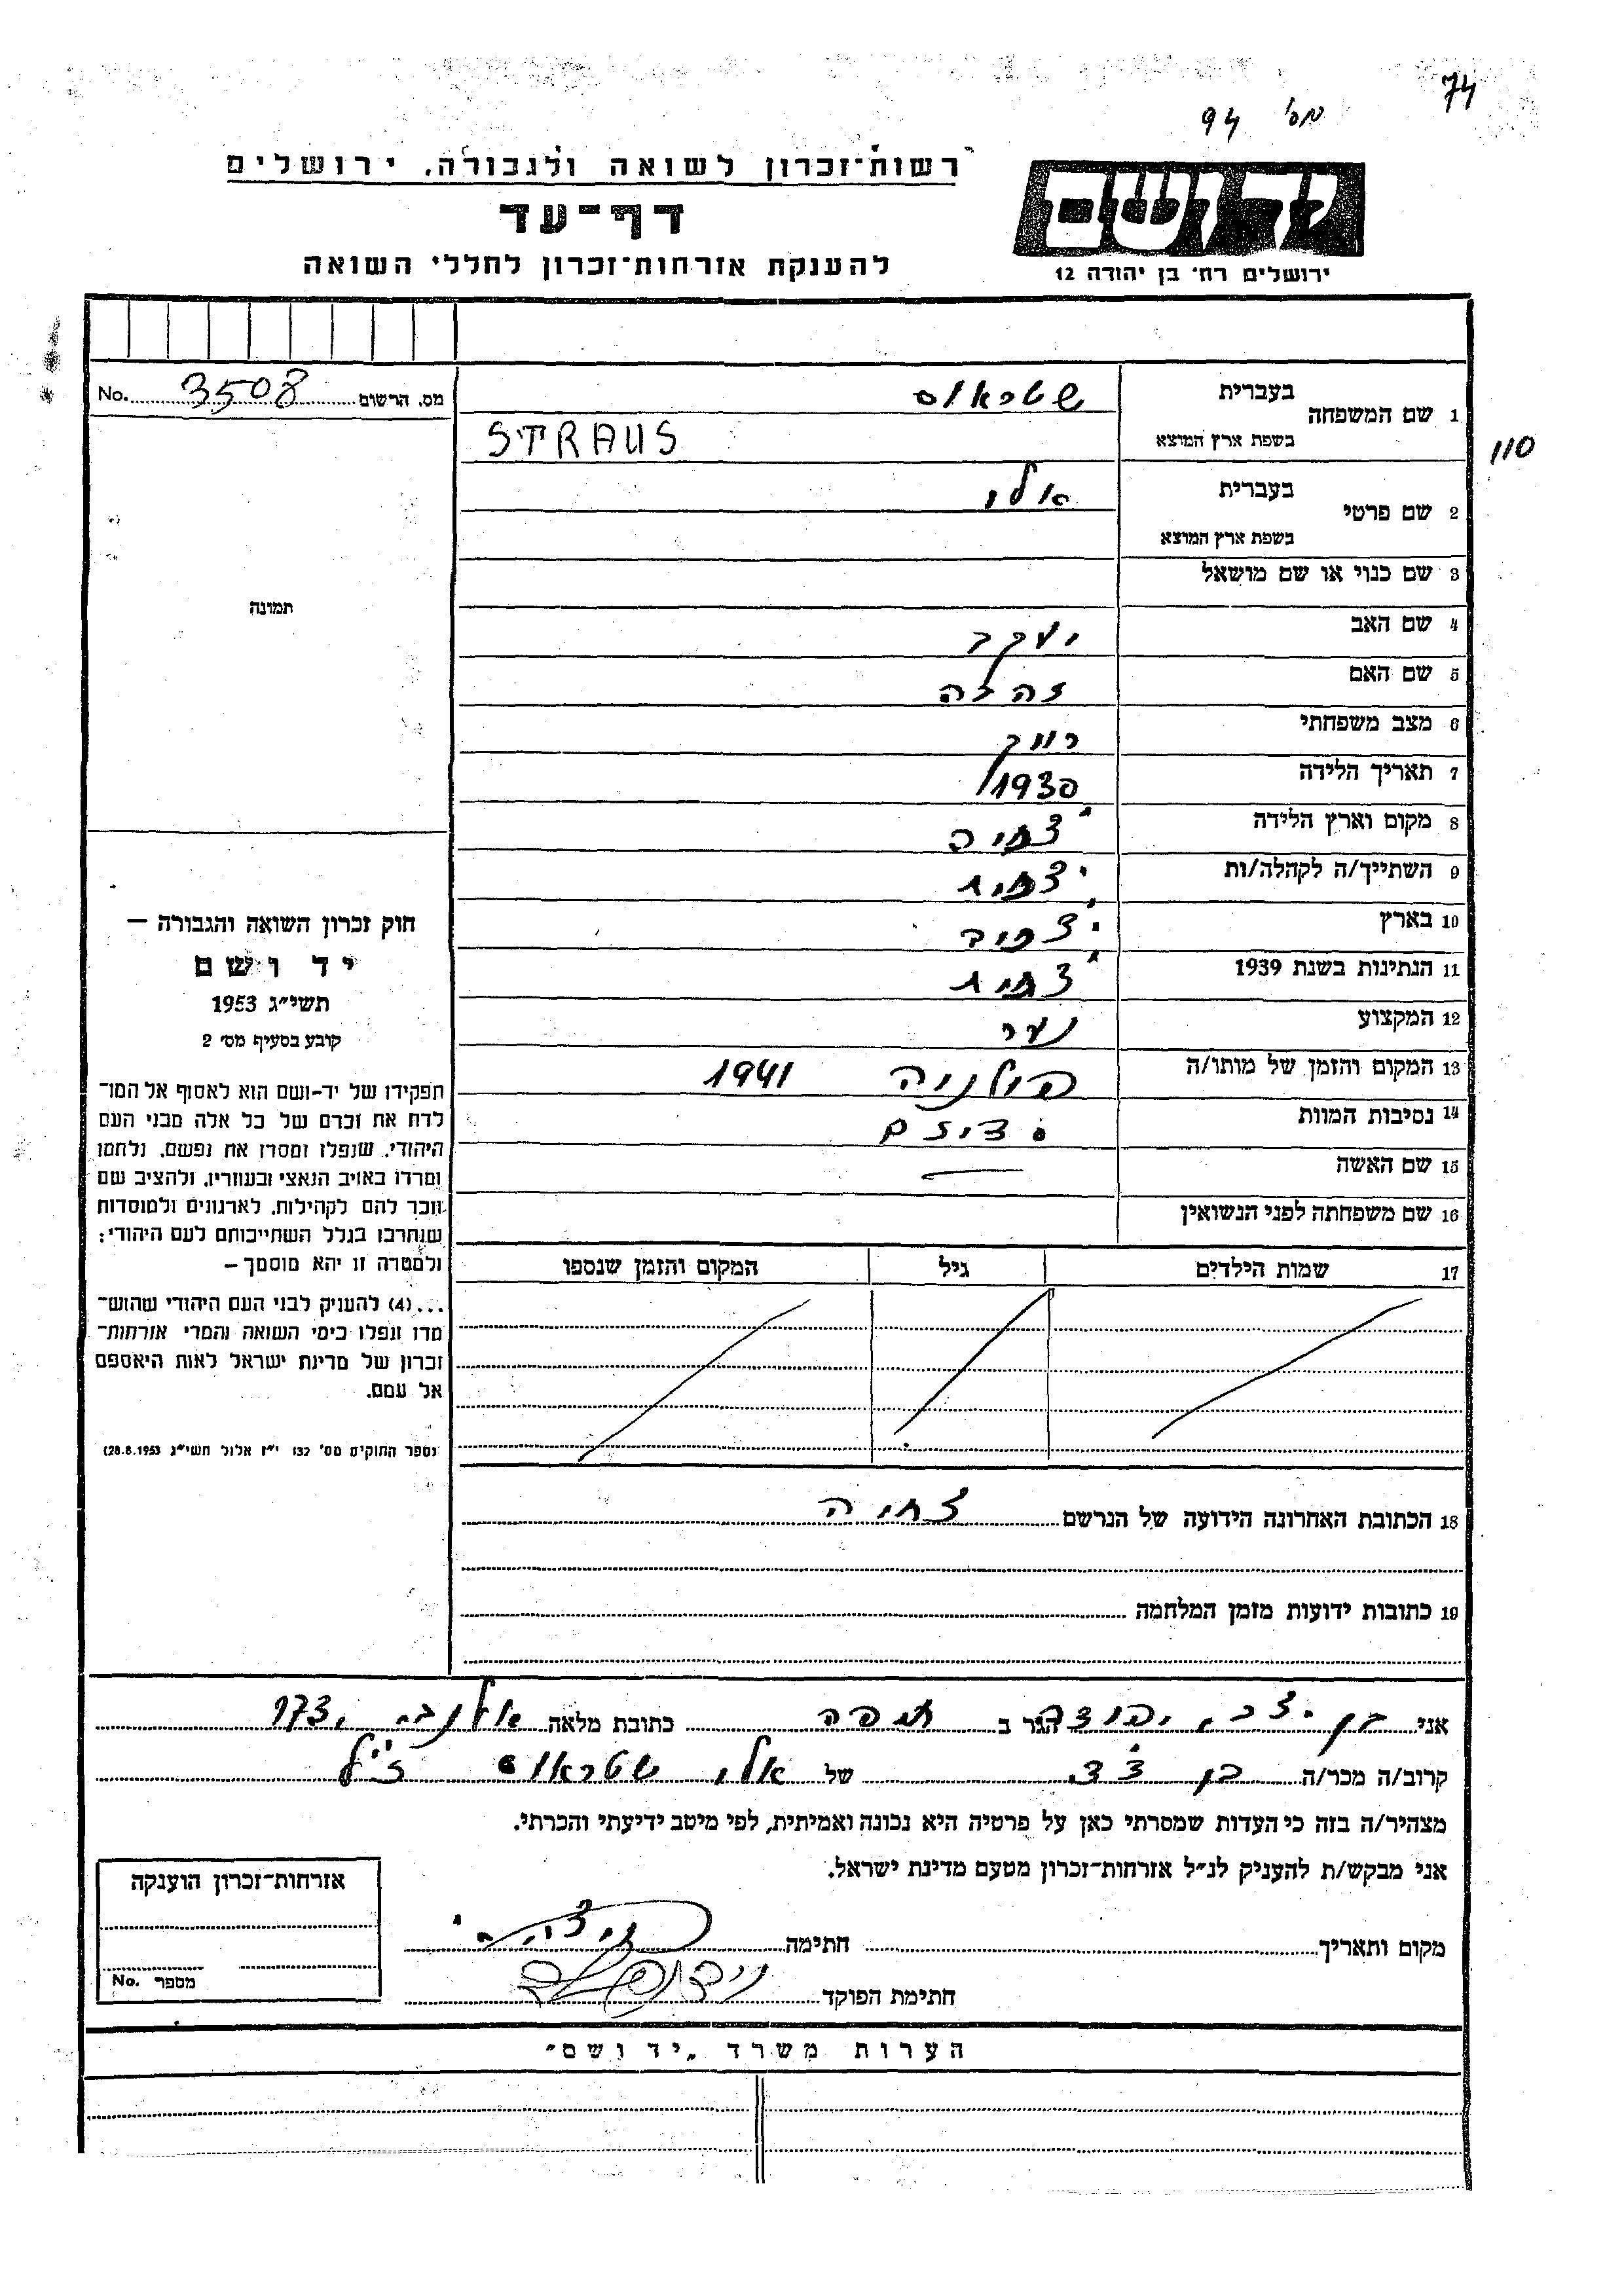 74
מס' 94
רשות־זכרון לשואה ולגבורה, ירושלים
דף־עד
להענקת אזרחות־זכרון לחללי השואה
יד ושם
ירושלים רח' בן יהודה 12
מס. הרשום 3508 No.
1 שם המשפחה
בעברית שטראוס
בשפת ארץ המוצא STRAUS
110
2 שם פרטי
בעברית אלי
בשפת ארץ המוצא
3 שם כנוי או שם מושאל
4 שם האב יעקב
5 שם האם זהבה
6 מצב משפחתי רווק
7 תאריך הלידה 1930
8 מקום וארץ הלידה צ'חיה
9 השתייך/ה לקהלה/ות
10 בארץ
11 הנתינות בשנת 1939
12 המקצוע נער
13 המקום והזמן של מותו/ה פולניה 1941
14 נסיבות המוות
15 שם האשה —
16 שם משפחתה לפני הנשואין
17 שמות הילדים גיל המקום והזמן שנספו
18 הכתובת האחרונה הידועה של הנרשם צחיה
19 כתובות ידועות מזמן המלחמה
תמונה
חוק זכרון השואה והגבורה —
יד ושם
תשי״ג 1953
קובע בסעיף מס׳ 2
תפקידו של יד־ושם הוא לאסוף אל המו־
לדת את זכרם של כל אלה מבני העם
היהודי, שנפלו ומסרו את נפשם, נלחמו
ומרדו באויב הנאצי ובעוזריו, ולהציב שם
וזכר להם לקהילות, לארגונים ולמוסדות
שנחרבו בגלל השתייכותם לעם היהודי;
ולמטרה זו יהא מוסמך —
...(4) להעניק לבני העם היהודי שהוש־
מדו ונפלו בימי השואה והמרי אזרחות־
זכרון של מדינת ישראל לאות היאספם
אל עמם.
(ספר החוקים מס' 132 י״ז אלול תשי״ג 28.8.1953)
אני בן יהודה הגר ב חיפה כתובת מלאה אלנבי 173
קרוב/ה מכר/ה בן דד של אלי שטראוס ז״ל
מצהיר/ה בזה כי העדות שמסרתי כאן על פרטיה היא נכונה ואמיתית, לפי מיטב ידיעתי והכרתי.
אני מבקש/ת להעניק לנ״ל אזרחות־זכרון מטעם מדינת ישראל.
מקום ותאריך חתימה
חתימת הפוקד
אזרחות־זכרון הוענקה
מספר No.
הערות משרד „יד ושם״